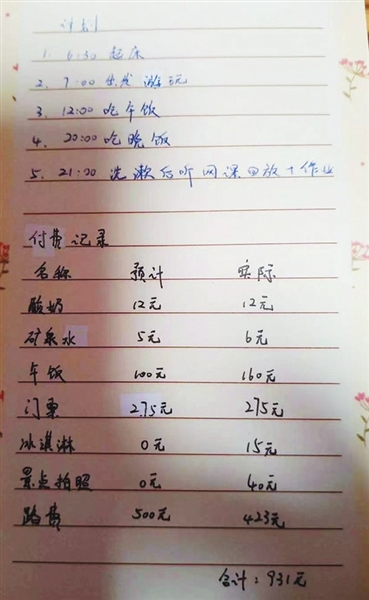 计划
1. 6:30 起床
2. 7:00 出发 游玩
3. 12:00 吃午饭
4. 20:00 吃晚饭
5. 21:20 洗漱后听网课回放+作业
付费记录
名称 预计 实际
酸奶 12元 12元
矿泉水 5元 6元
午饭 100元 160元
门票 275元 275元
冰淇淋 0元 15元
景点拍照 0元 40元
路费 500元 423元
合计：931元